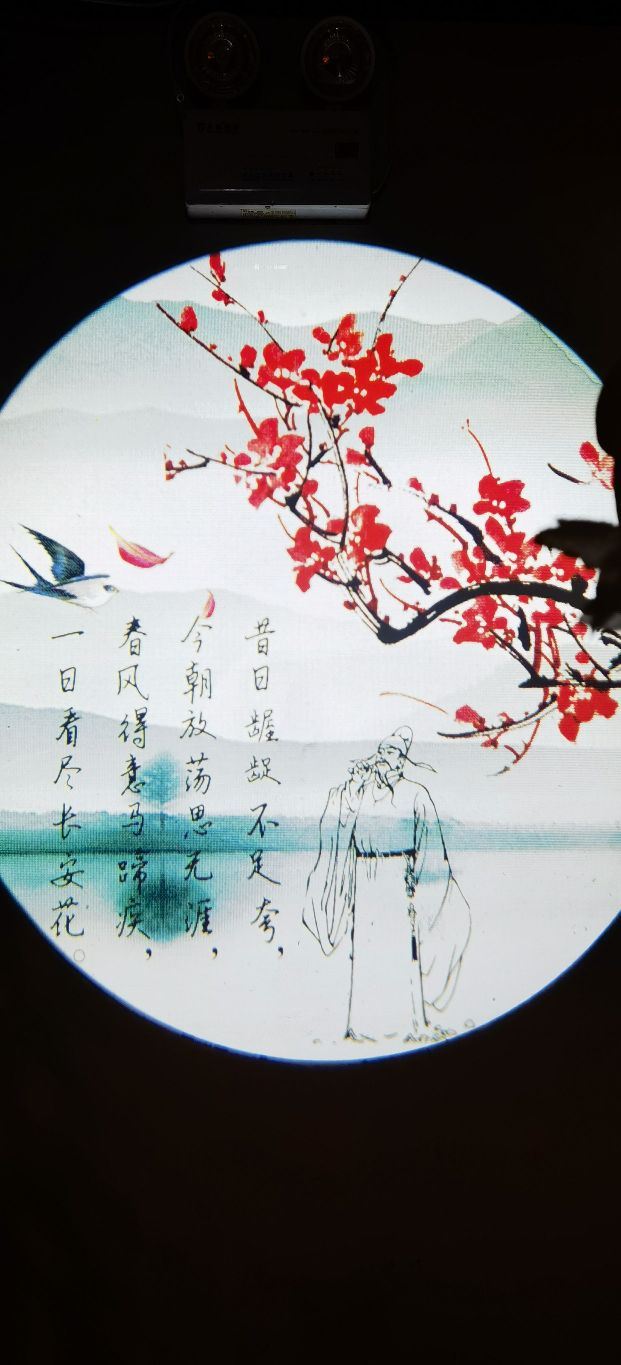 昔日龌龊不足夸，
今朝放荡思无涯，
春风得意马蹄疾，
一日看尽长安花。